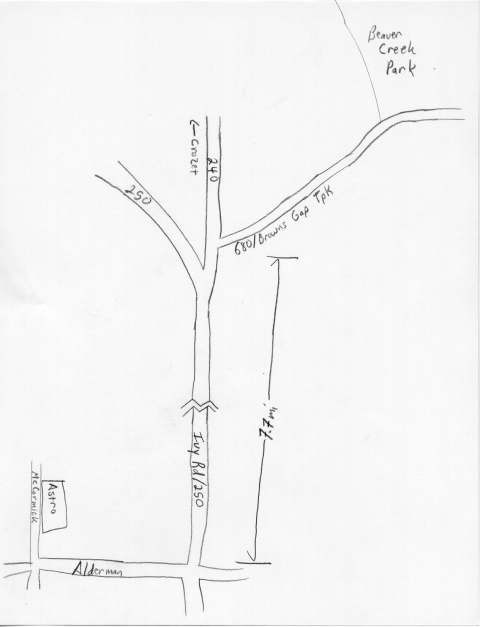 Beaver
Creek
Park
← Crozet
240
250
680/Browns Gap Tpk
7.7 mi
Ivy Rd/250
McCormick
Astro
Alderman